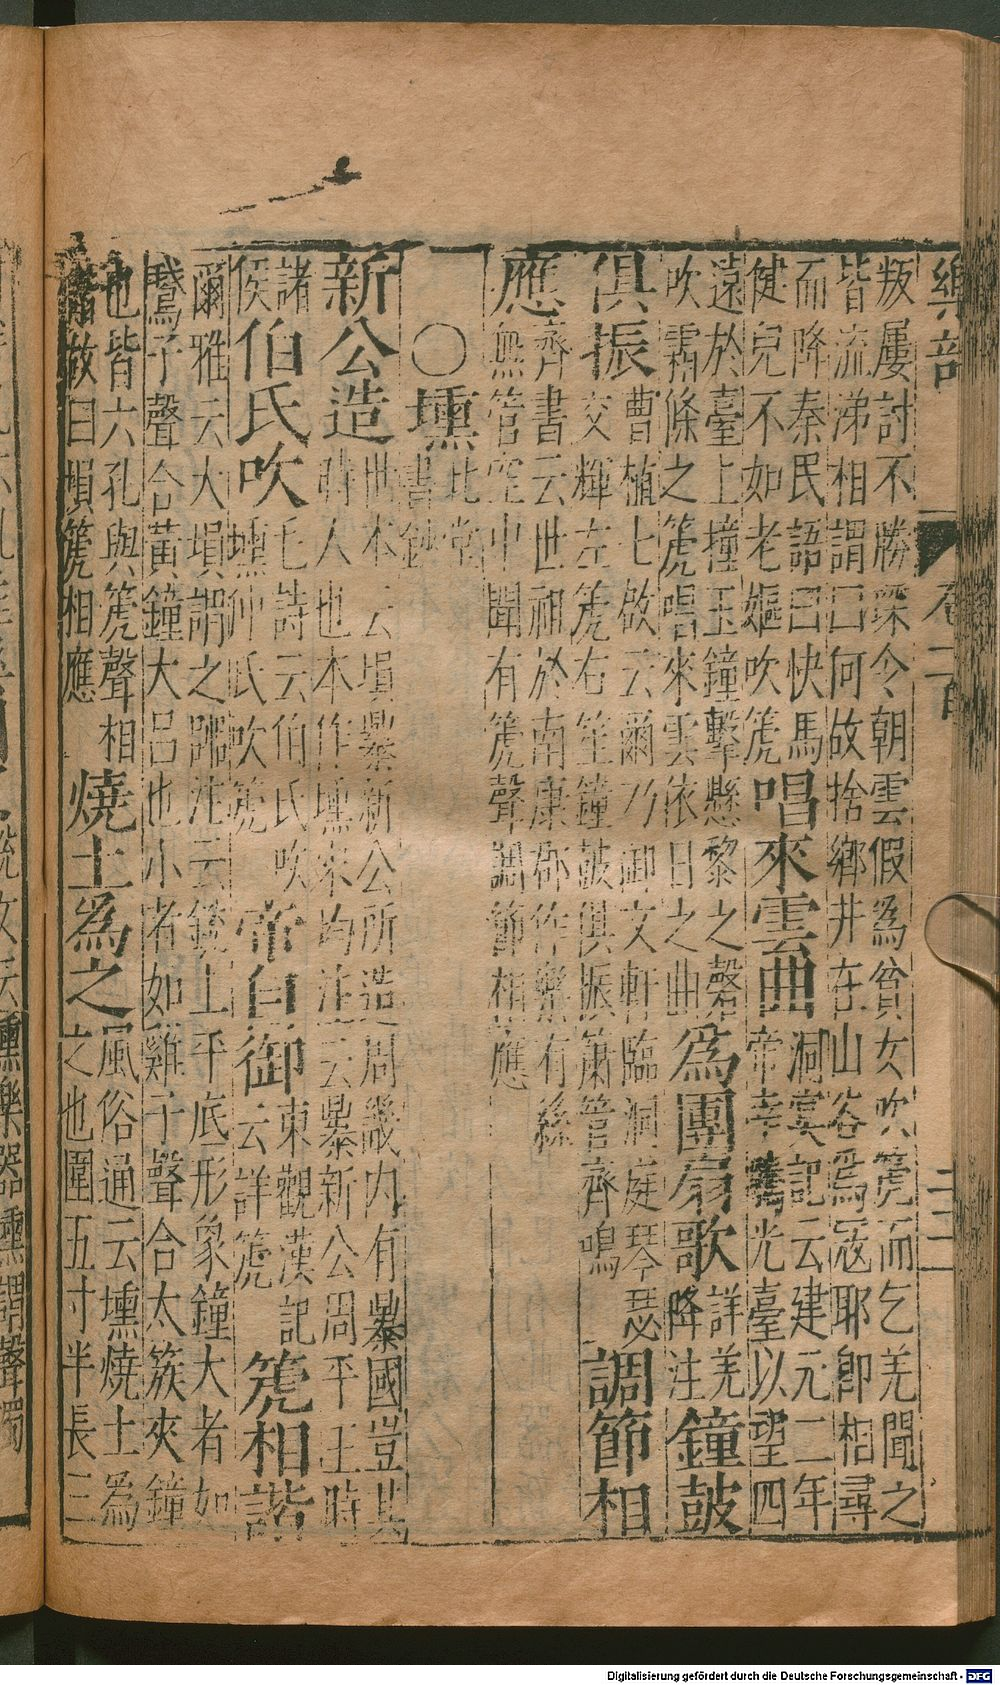 樂部 卷二百 三二
叛屢討不勝琛令朝雲假為貧女吹箎而乞羌聞之
皆流涕相謂曰何故捨鄉井在山谷爲寇耶卽相尋
而降秦民語曰快馬
健兒不如老嫗吹箎
唱來雲曲
洞冥記云建元二年
帝幸騰光臺以望四
遠於臺上撞玉鐘擊懸黎之磬
吹霜條之箎唱來雲依日之曲
爲團扇歌
詳羌
降注
鐘鼓
俱振
曹植七啟云爾乃御文軒臨洞庭琴瑟
交輝左箎右笙鐘鼓俱振簫管齊鳴
調節相
應
齊書云世祖於南康郡作樂有絲
無管空中聞有箎聲調節相應
〇壎
北堂
書鈔
新公造
世本云塤㬥新公所造周畿内有㬥國豈其
時人也本作壎宋均注云㬥新公周平王時
諸
侯
伯氏吹
毛詩云伯氏吹
壎仲氏吹箎
帝自御
東觀漢記
云詳箎
箎相諧
爾雅云大塤謂之䶵注云銳上平底形象鐘大者如
鵞子聲合黃鐘大呂也小者如雞子聲合太簇夾鐘
也皆六孔與箎聲相
諧故曰塤箎相應
燒土爲之
風俗通云壎燒土爲
之也圍五寸半長三
說文云
壎樂器
壎謂聲濁
Digitalisierung gefördert durch die Deutsche Forschungsgemeinschaft - DFG